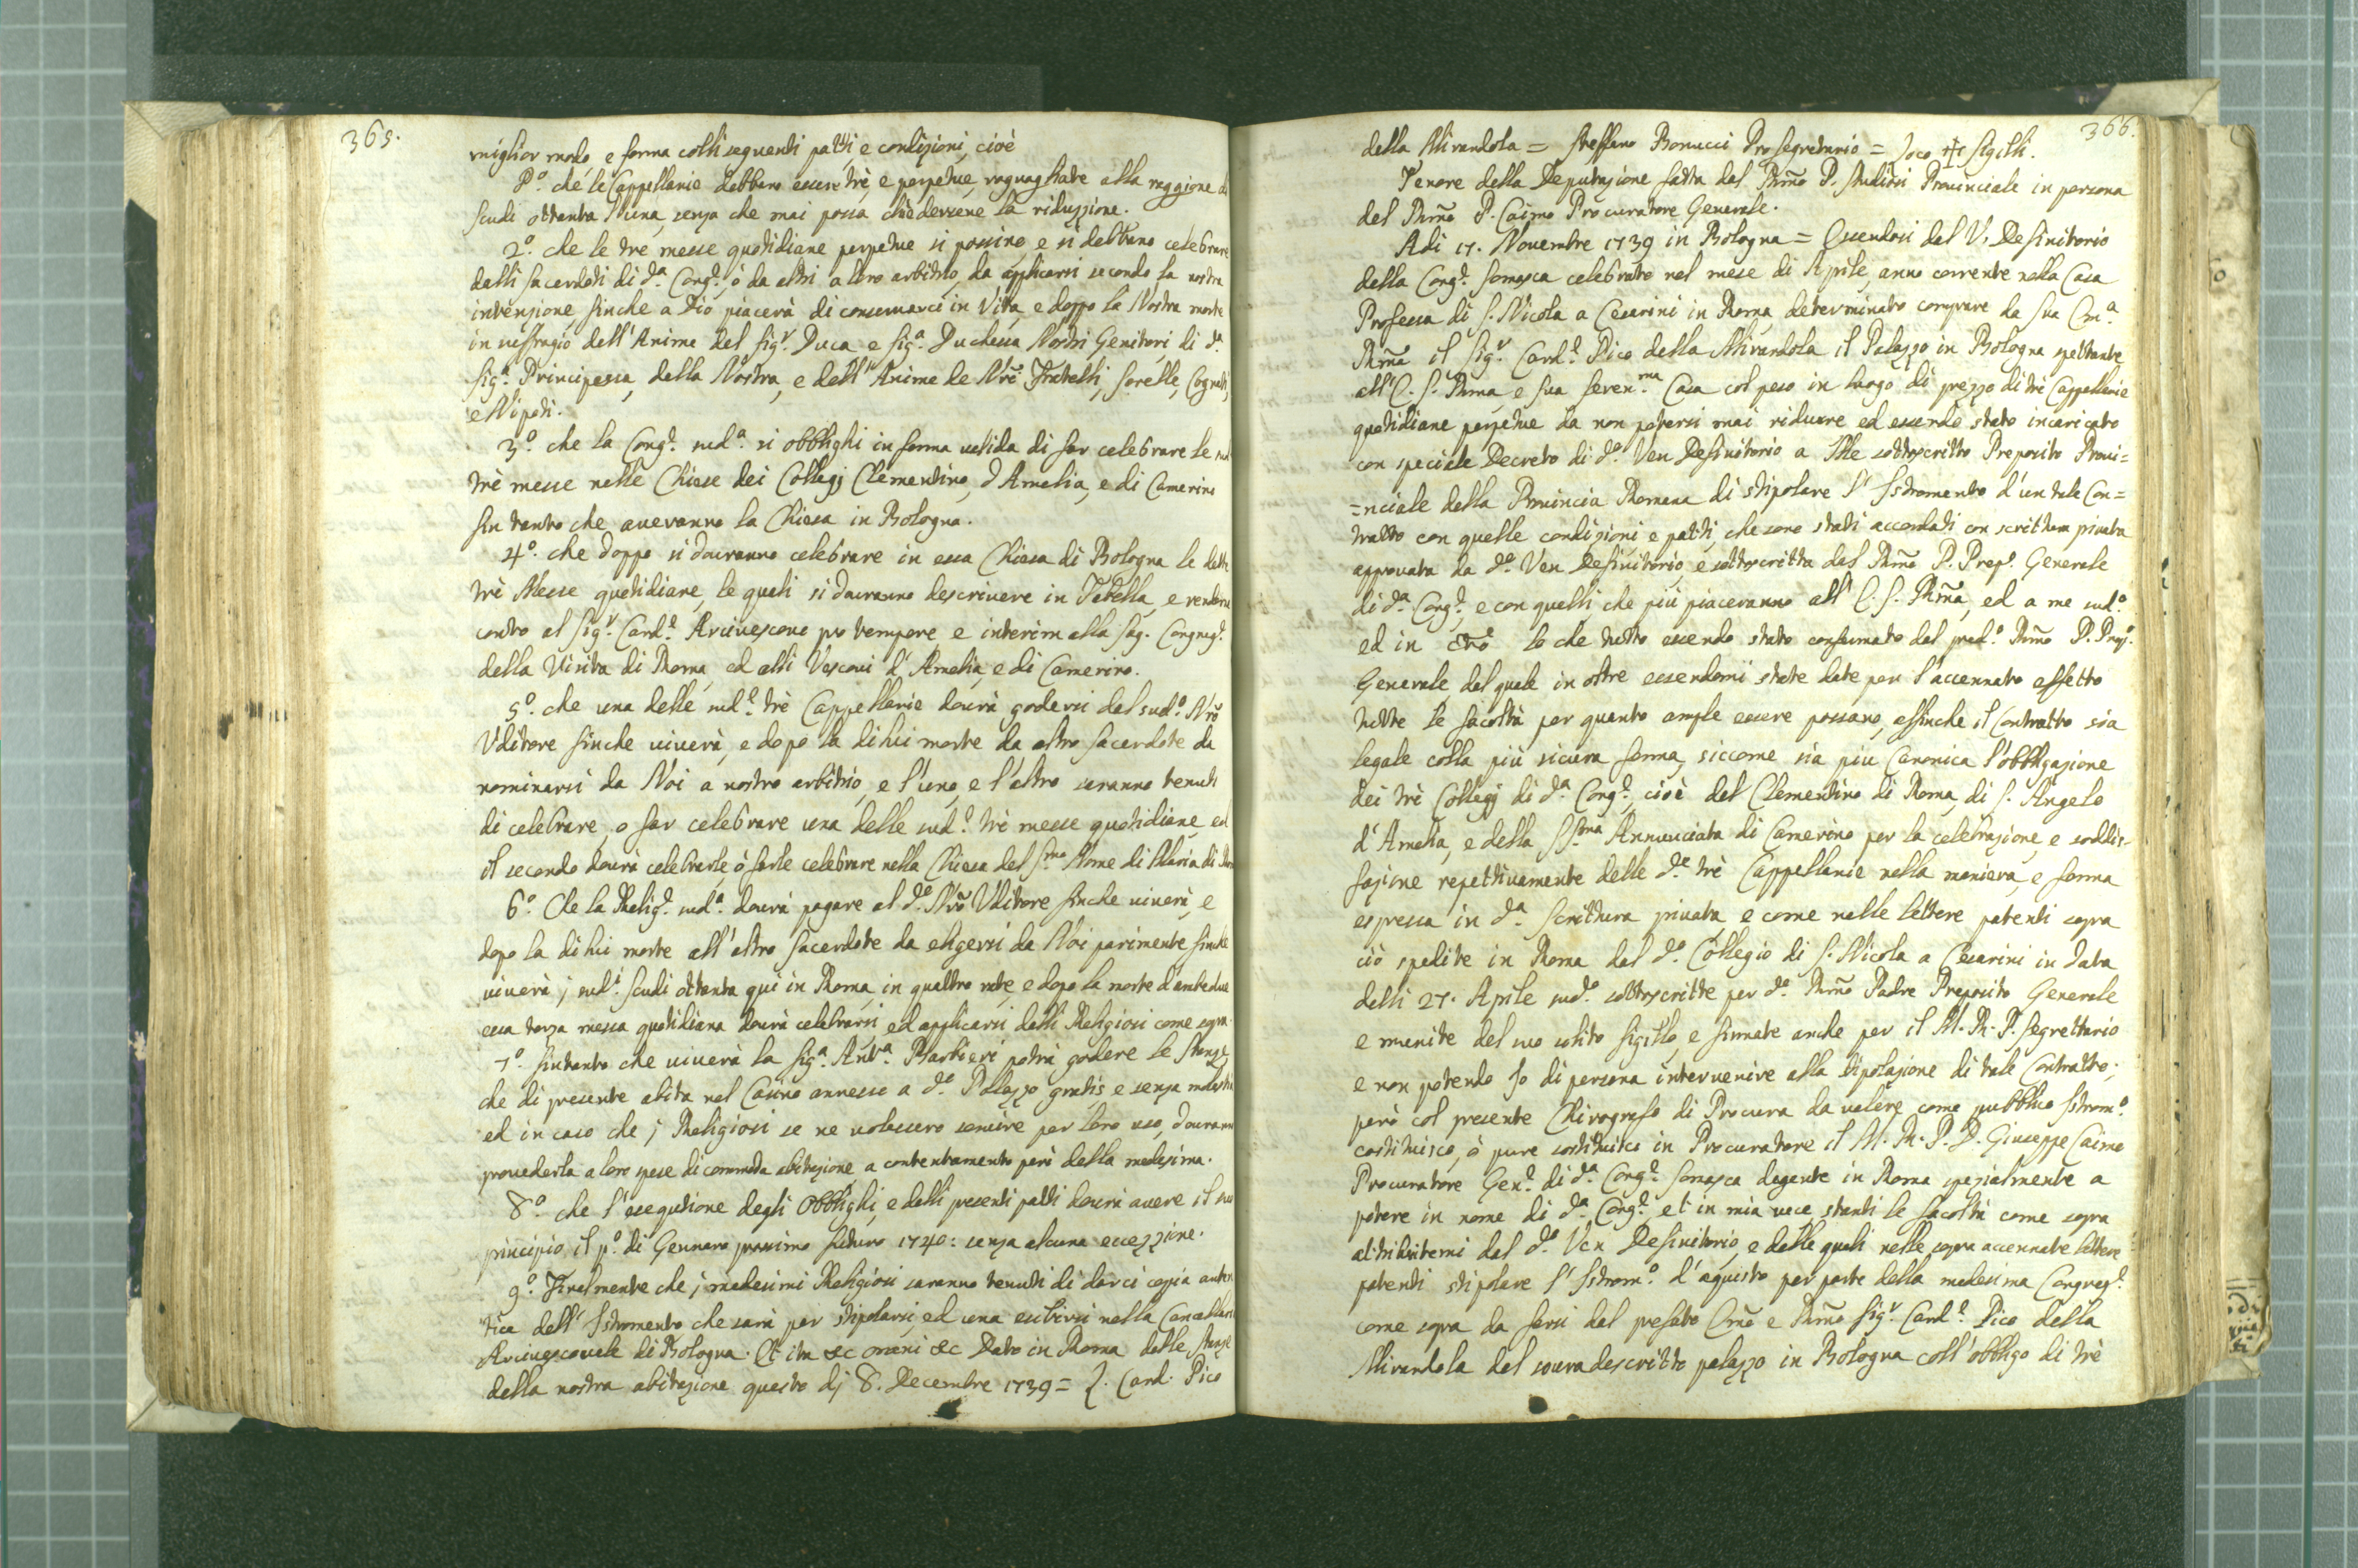 365.
miglior modo, e forma colli seguenti patti, e condizioni, cioè
P.º che le Cappellanie debbano essere trè, e perpetue, raguagliate alla raggione di
scudi ottanta l'una, senza che mai possa chiedersene la riduzzione.
2º. che le tre messe quotidiane perpetue si possino, e si debbano celebrare
dalli sacerdoti di d.ª Cong.e, ò da altri a loro arbitrio, da applicarsi secondo la nostra
intenzione, finche a Dio piacerà di conservarci in Vita, e doppo la Nostra morte
in suffragio dell'Anime del Sig.r Duca, e Sig.ª Duchessa Nostri Genitori, di d.ª
Sig.ª Principessa, della Nostra, e dell'Anime de Nri Fratelli, Sorelle, Cognati,
e Nipoti.
3º. che la Cong.e sud.ª si obblighi in forma valida di far celebrare le sud
trè messe nelle Chiese dei Collegj Clementino, d'Amelia, e di Camerino
sin tanto che averanno la Chiesa in Bologna.
4º. che doppo si dovranno celebrare in essa Chiesa di Bologna le dette
trè Messe quotidiane, le quali si dovranno descrivere in Tabella, e renderne
conto al Sig.r Card.e Arcivescovo pro tempore e interim alla Sag. Congreg.e
della Visita di Roma, ed alli Vescovi d'Amelia, e di Camerino.
5º. che una delle sud.e trè Cappellanie dovrà godersi dal sud.º Nrõ
Uditore finche viverà, e dopo la di lui morte da altro sacerdote da
nominarsi da Noi a nostro arbitrio, e l'uno, e l'altro saranno tenuti
di celebrare, o far celebrare una delle sud.e trè messe quotidiane, ed
il secondo dovrà celebrarle, ò farle celebrare nella Chiesa del S.mo Nome di Maria di Rom
6º. Che la Relig.e sud.ª dovrà pagare al d.º Nrõ Uditore finche viverà, e
dopo la di lui morte all'altro sacerdote da eligersi da Noi parimente finche
viverà, j sud.i scudi ottanta quì in Roma in quattro rate, e dopo la morte d'ambedue
essa terza messa quotidiana dovrà celebrarsi, ed applicarsi dalli Religiosi come sopra.
7º. sintanto che viverà la Sig.ª Ant.ª Barbieri potrà godere le stanze,
che di presente abita nel Casino annesso a d.º Palazzo gratis, e senza molestia
ed in caso che j Religiosi se ne volessero servire per loro uso, dovranno
provederla a loro spese di commoda abitazione, a contentamento però della medesima.
8º. che l'esegutione degli Obblighi, e delli presenti patti dovrà avere il suo
principio il p.º di Gennaro prossimo futuro 1740: senza alcuna eccezzione.
9º. Finalmente che j medesimi Religiosi saranno tenuti di darci copia auten
tica dell'Istromento che sarà per stipolarsi, ed una esibirsi nella Cancellari
Arcivescovale di Bologna. Et ita &c omni &c Dato in Roma dalle stanze
della nostra abitazione questo dj 8. Decembre 1739 = L. Card. Pico
366.
della Mirandola = Steffano Bonucci Pro Segretario = Loco ✝ Sigilli.
Tenore della Deputazione fatta dal Rmõ P. Provinciale in persona
del Rmõ P. Caimo Procuratore Generale.
Adi 17. Novembre 1739 in Bologna = Essendosi dal V. Definitorio
della Cong.e Somasca celebrato nel mese di Aprile, anno corrente nella Casa
Professa di S. Nicola a Cesarini in Roma, determinato comprare da Sua Em.ª
Rmã il Sig.r Card.e Pico della Mirandola il Palazzo in Bologna spettante
all'E. S. Rma, e sua Seren.ma Casa col peso in luogo di prezzo di trè Cappellanie
quotidiane perpetue da non potersi mai ridurre ed essendo stato incaricato
con speciale Decreto di d.º Ven Definitorio a Me sottoscritto Preposito Provi=
=nciale della Provincia Romana di stipolare l'Istromento d'un tale Con=
tratto con quelle condizioni, e patti, che sono stati accordati con scrittura privata
approvata da d.º Ven Definitorio, e sottoscritta dal Rmõ P. Prep.º Generale
di d.ª Cong.e, e con quelli che più piaceranno all'E. S. Rmã, ed a me sud.º
ed in Lo che tutto essendo stato confirmato dal pred.º Rmõ P. Prep.º
Generale dal quale in oltre essendomi state date per l'accennato effetto
tutte le facoltà per quanto ample essere possano, affinche il Contratto sia
legale colla più sicura forma, siccome sia più Canonica l'obbligazione
dei trè Collegj di d.ª Cong.e, cioè del Clementino di Roma, di S. Angelo
d'Amelia, e della SS.ma Annunciata di Camerino per la celebrazione, e soddis-
fazione repettivamente delle d.e trè Cappellanie nella maniera, e forma
espressa in d.ª Scrittura privata e come nelle lettere patenti sopra
ciò spedite in Roma dal d.º Collegio di S. Nicola a Cesarini in data
delli 27. Aprile sud.º sottoscritte per d.º Rmõ Padre Preposito Generale
e munite del suo solito sigillo, e firmate anche per il M. R. P. Segrettario
e non potendo Io di persona intervenire alla stipolazione di tale Contratto;
però col presente Chirografo di Procura da valere come pubblico Istrom.º
costituisco, ò pure sostituisco in Procuratore il M. R. P. D. Giuseppe Caimo
Procuratore Gen.e di d.ª Cong.e Somasca degente in Roma spezialmente a
potere in nome di d.ª Cong.e, et in mia vece stanti le facoltà come sopra
attribuitemi dal d.º Ven Definitorio, e dalle quali nelle sopra accennate lettere
patenti stipolare l'Istrom.º d'aquisto per parte della medesima Congreg.e
come sopra da farsi dal prefato Emõ e Rmõ Sig.r Card.e Pico della
Mirandola del sovradescritto palazzo in Bologna coll'obbligo di trè